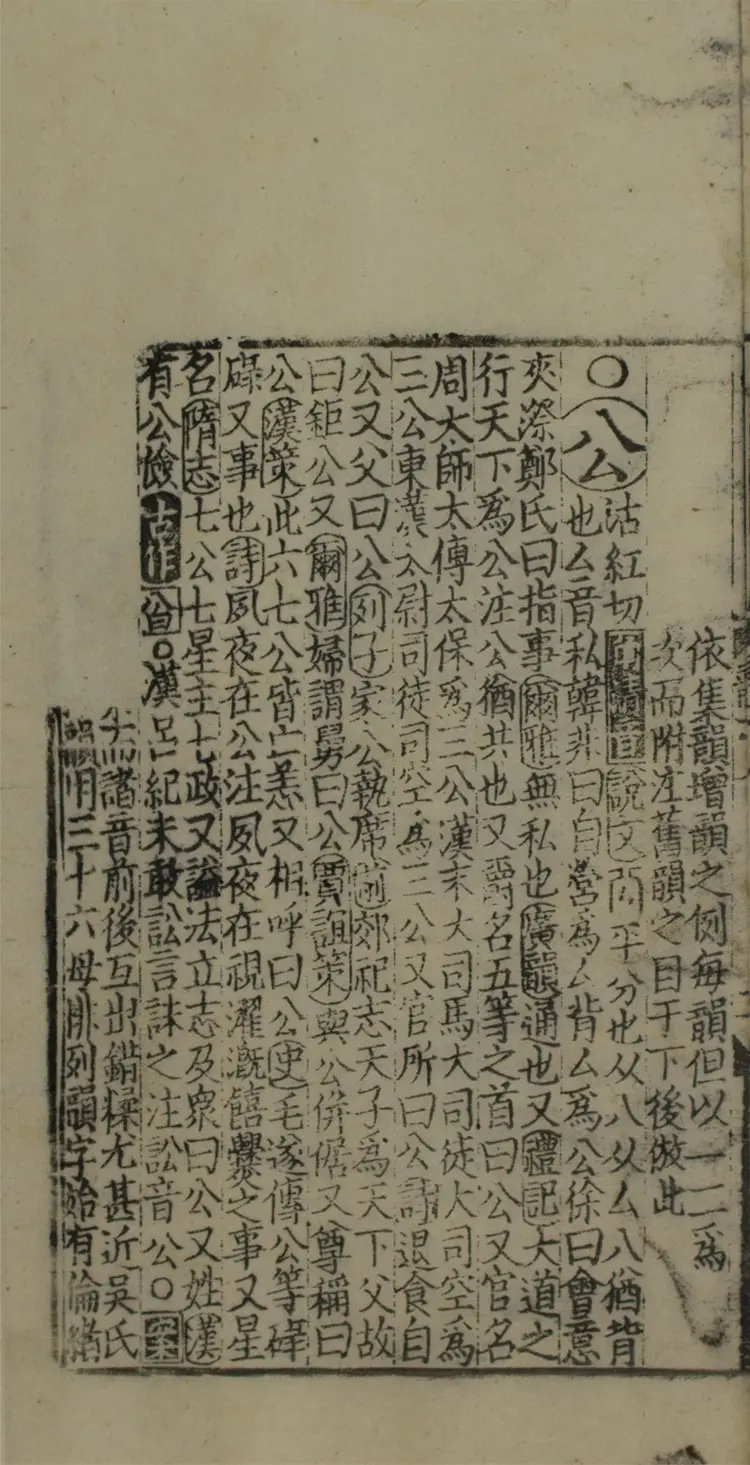 依集韻增韻之側每韻但以一二爲
次而附注舊韻之目于下後倣此
○公沽紅切說文平分也从八从厶八猶背
也厶音私韓非曰自營爲厶背厶爲公徐曰會意
夾漈鄭氏曰指事爾雅無私也廣韻通也又禮記大道之
行天下爲公注公猶共也又爵名五等之首曰公又官名
周大師太傅太保爲三公漢末大司馬大司徒大司空爲
三公東漢太尉司徒司空爲三公又官所曰公詩退食自
公又父曰公列子家公執席前郊祀志天子爲天下父故
曰鉅公又爾雅婦謂舅曰公賈誼策與公併倨又尊稱曰
公漢策此六七公皆亡恙又相呼曰公史毛遂傳公等碌
碌又事也詩夙夜在公注夙夜在視濯漑饎爨之事又星
名隋志七公七星主七政又謚法立志及衆曰公又姓漢
有公儉古作○漢呂紀未敢訟言誅之注訟音公○
諸音前後互出錯糅尤甚近吳氏
韻用三十六母排列韻字始有倫緒